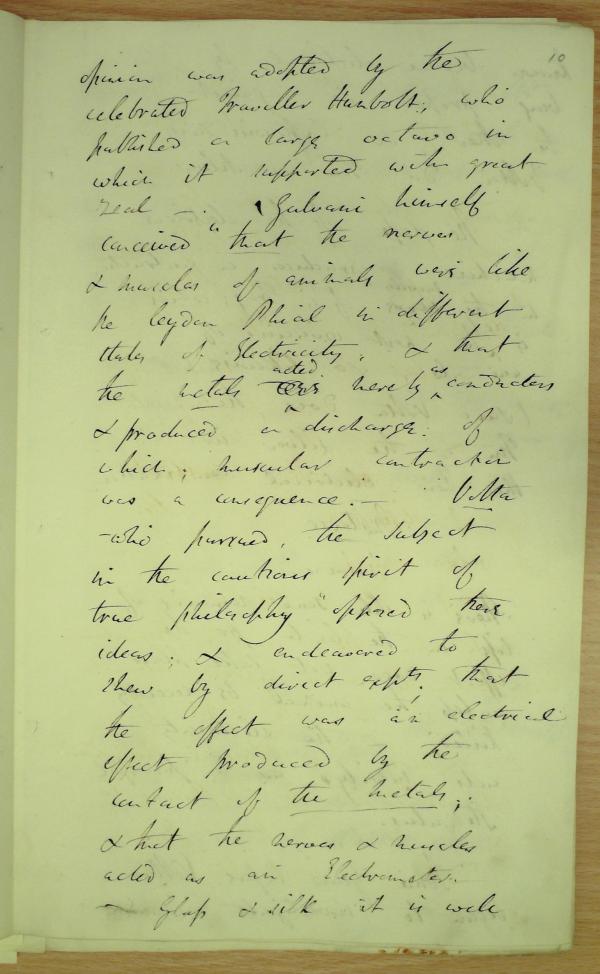 10
opinion was adopted by the
celebrated Traveller Humbolt; who
published a large octavo in
which it supported with great
zeal —. Galvani himself
conceived "that the nerves
& muscles of animals were like
the leyden Phial in different
states of Electricity, & that
the metals acted here by as conductors
& produced a discharge: of
which; muscular contraction
was a consequence. — Volta
-who pursued, the subject
in the cautious spirit of
true philosophy "opposed these
ideas; & endeavored to
shew by direct expts; that
the effect was an electrical
effect produced by the
contact of the metals;.
& that the nerves & muscles
acted as an Electrometer.
— Glass & silk it is well